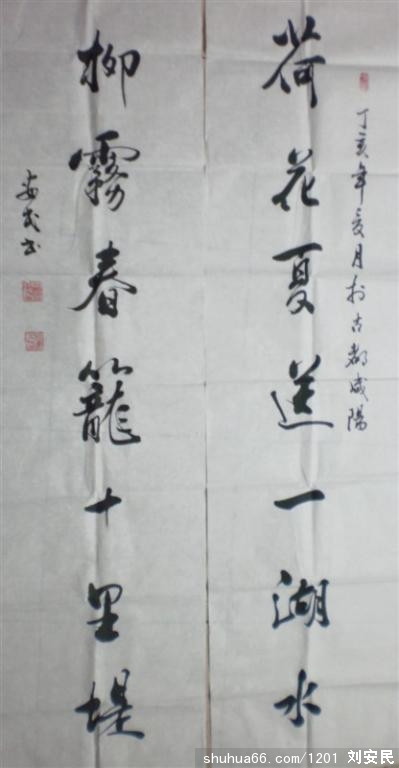 丁亥年夏月於古都咸陽
荷花夏送一湖水
柳霧春籠十里堤
安民书
shuhua66.com/1201 刘安民